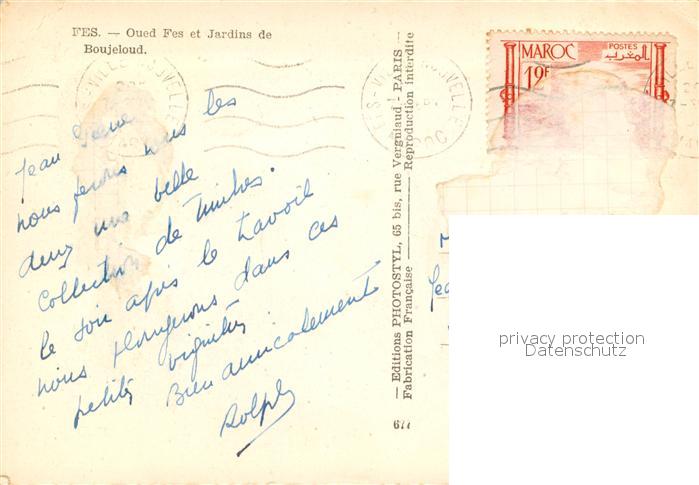 FES. — Oued Fes et Jardins de
Boujeloud.
Jean
nous ferons nous les
deux une belle
collection de Timbres.
le soir après le travail
nous plongerons dans ces
petites vignettes
Bien amicalement
Rolph
— Editions PHOTOSTYL, 65 bis, rue Vergniaud - PARIS —
Fabrication Française — Reproduction interdite
677
MAROC
POSTES
المغرب
12F
FES-VILLE NOUVELLE
MAROC
privacy protection
Datenschutz